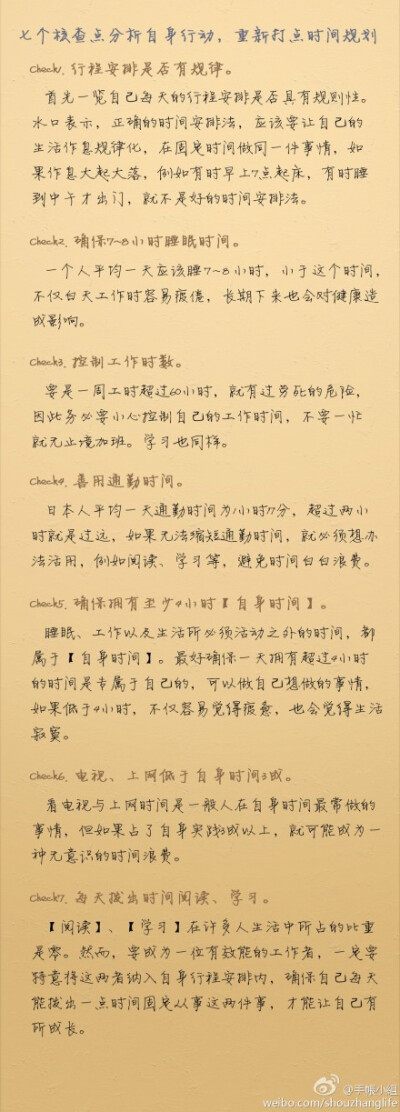 七个检查点分析自身行动，重新打点时间规划
Check1. 行程安排是否有规律。
首先一览自己每天的行程安排是否具有规则性。
水口表示，正确的时间安排法，应该要让自己的
生活作息规律化，在固定时间做同一件事情，如
果作息大起大落，例如有时早上7点起床，有时睡
到中午才出门，就不是好的时间安排法。
Check2. 确保7~8小时睡眠时间。
一个人平均一天应该睡7~8小时，小于这个时间，
不仅白天工作时容易疲倦，长期下来也会对健康造
成影响。
Check3. 控制工作时数。
要是一周工时超过60小时，就有过劳死的危险，
因此务必要小心控制自己的工作时间，不要一忙
就无止境加班。学习也同样。
Check4. 善用通勤时间。
日本人平均一天通勤时间为1小时17分，超过两小
时就是过远，如果无法缩短通勤时间，就必须想办
法活用，例如阅读、学习等，避免时间白白浪费。
Check5. 确保拥有至少4小时【自身时间】。
睡眠、工作以及生活所必须活动之外的时间，都
属于【自身时间】。最好确保一天拥有超过4小时
的时间是专属于自己的，可以做自己想做的事情，
如果低于4小时，不仅容易觉得疲惫，也会觉得生活
寂寞。
Check6. 电视、上网低于自身时间3成。
看电视与上网时间是一般人在自身时间最常做的
事情，但如果占了自身实践3成以上，就可能成为一
种无意识的时间浪费。
Check7. 每天拨出时间阅读、学习。
【阅读】、【学习】在许多人生活中所占的比重
是零。然而，要成为一位有效能的工作者，一定要
特意将这两者纳入自身行程安排内，确保自己每天
能拨出一点时间固定从事这两件事，才能让自己有
所成长。
@手帐小组
weibo.com/shouzhanglife